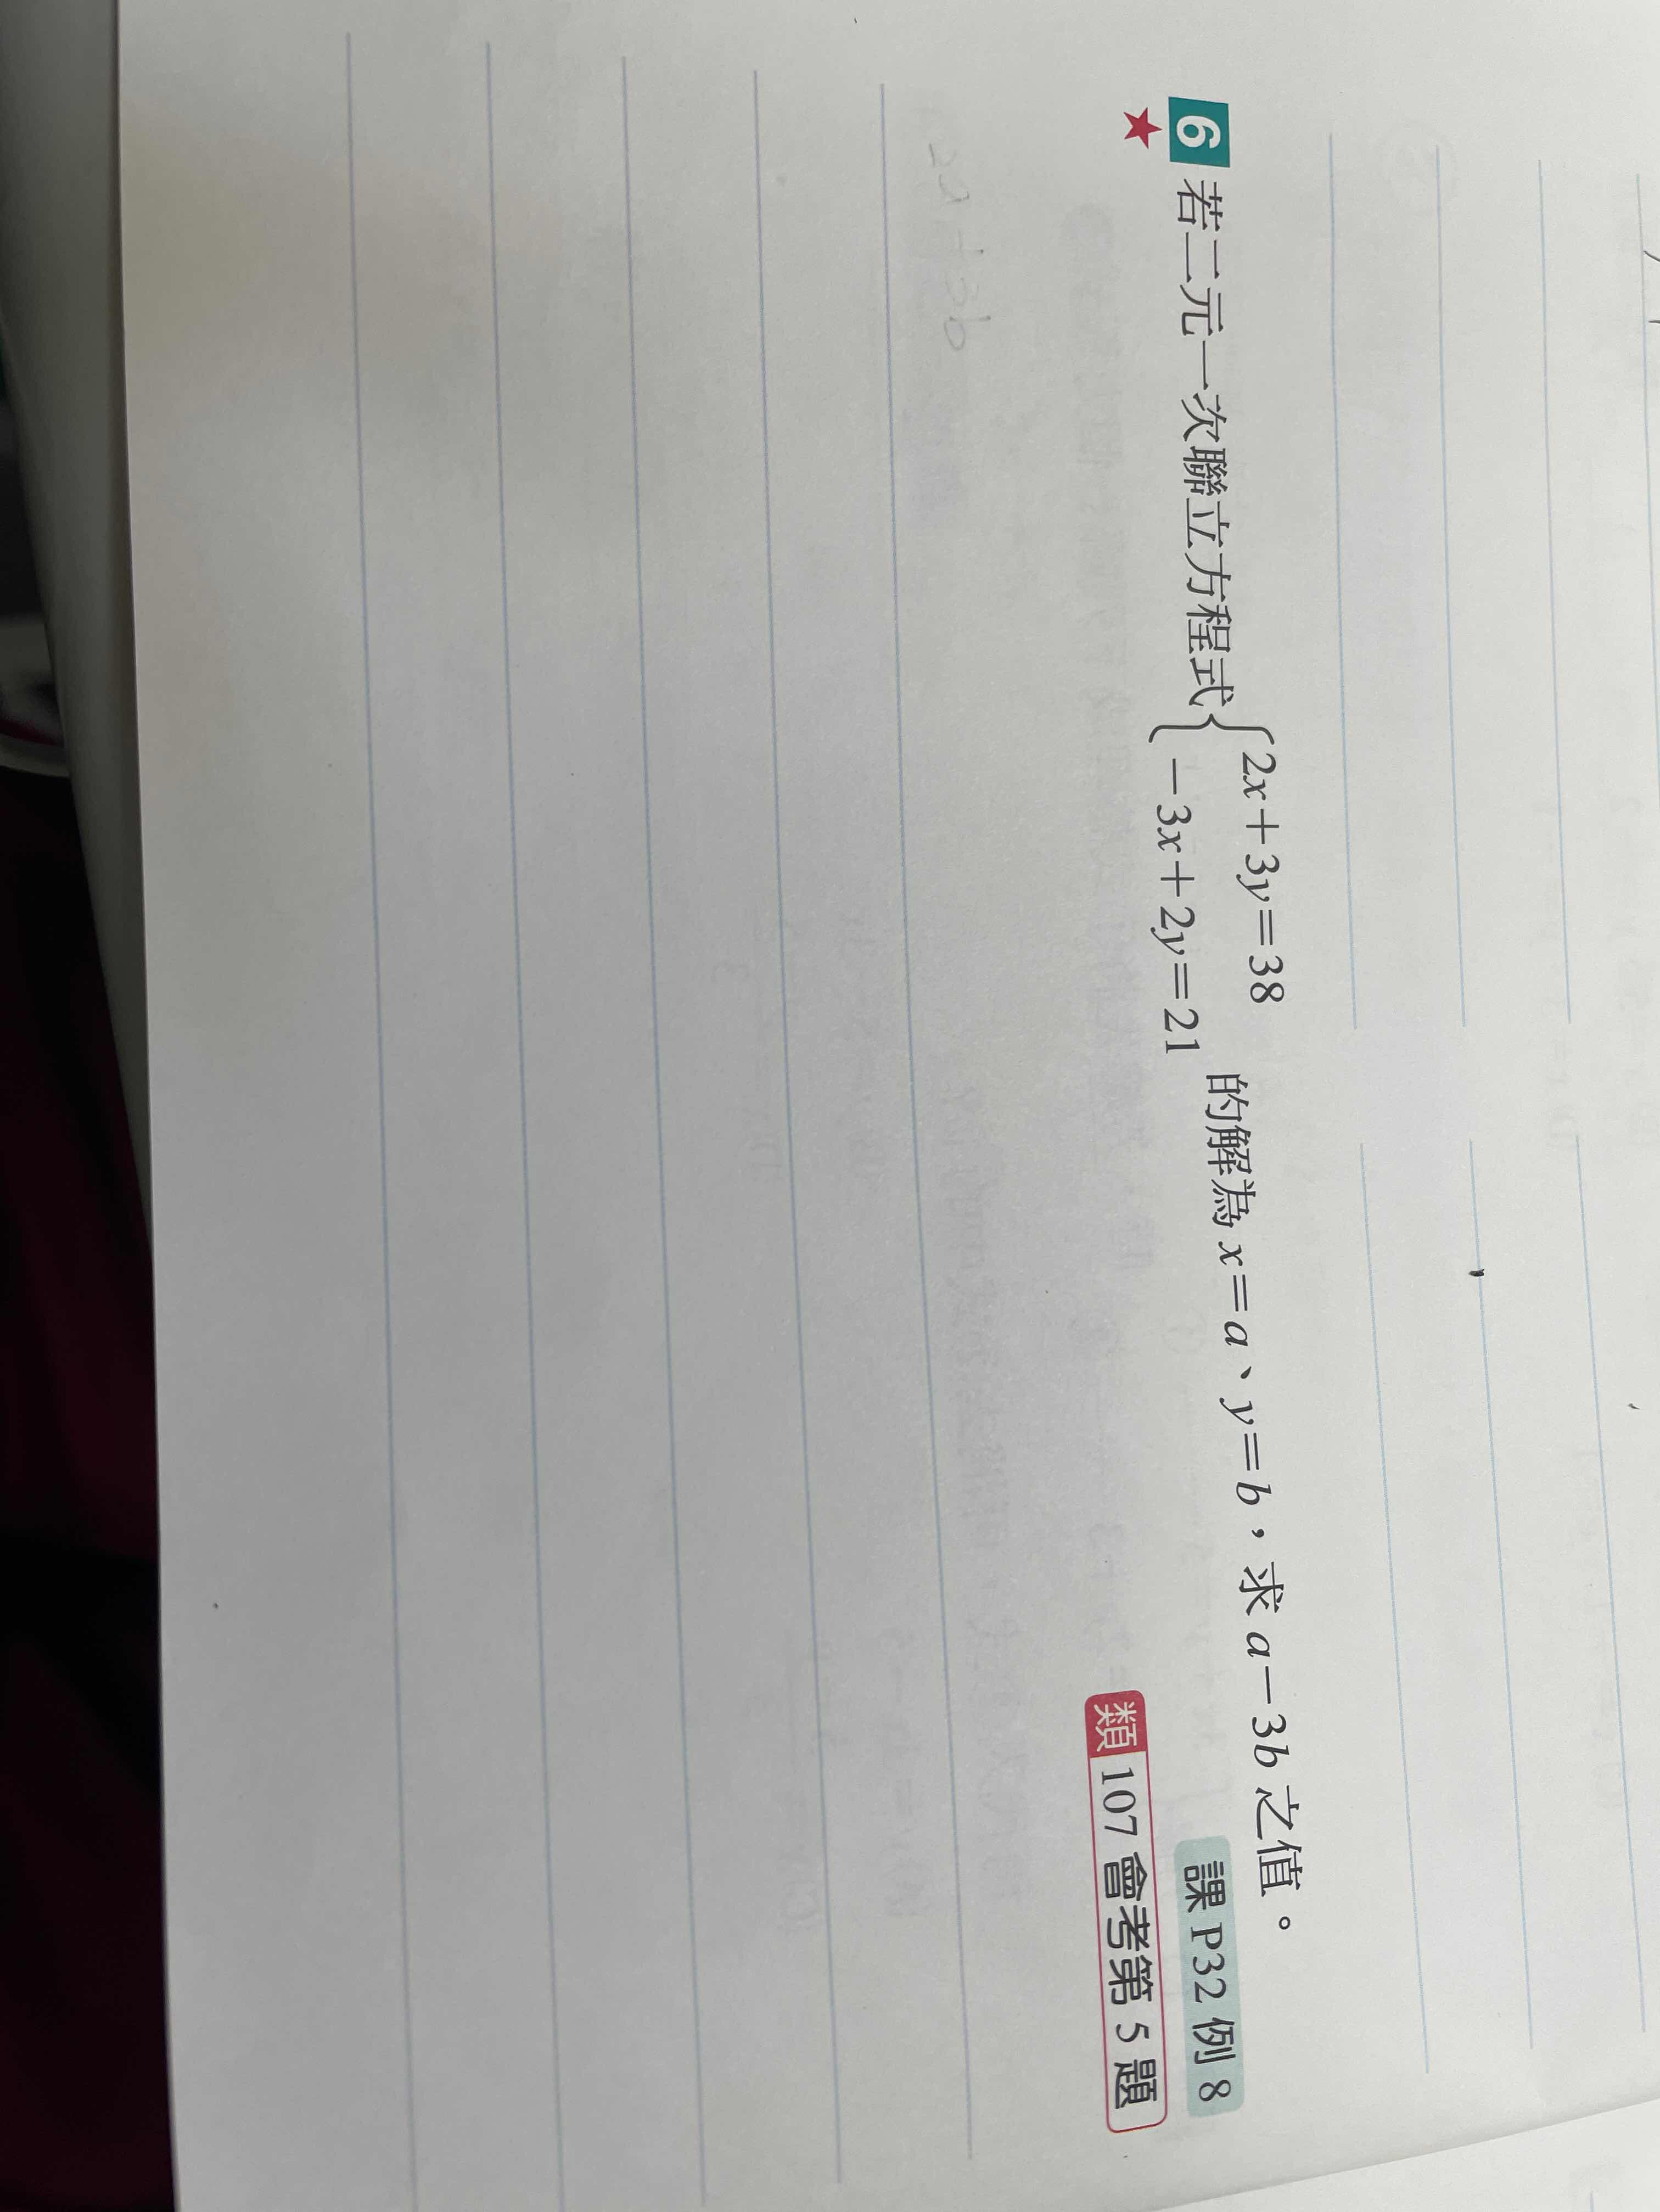 6 若二元一次聯立方程式{2x+3y=38
-3x+2y=21 的解為 x=a、y=b,求 a-3b 之值。
課 P32 例 8
★
類 107 會考第 5 題
2a+3b